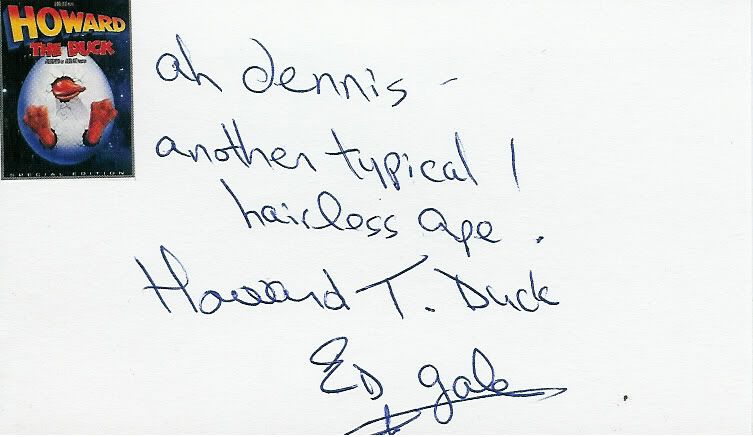 HOWARD
THE DUCK
SPECIAL EDITION
ah dennis -
another typical
hairless ape.
Howard T. Duck
ED gale